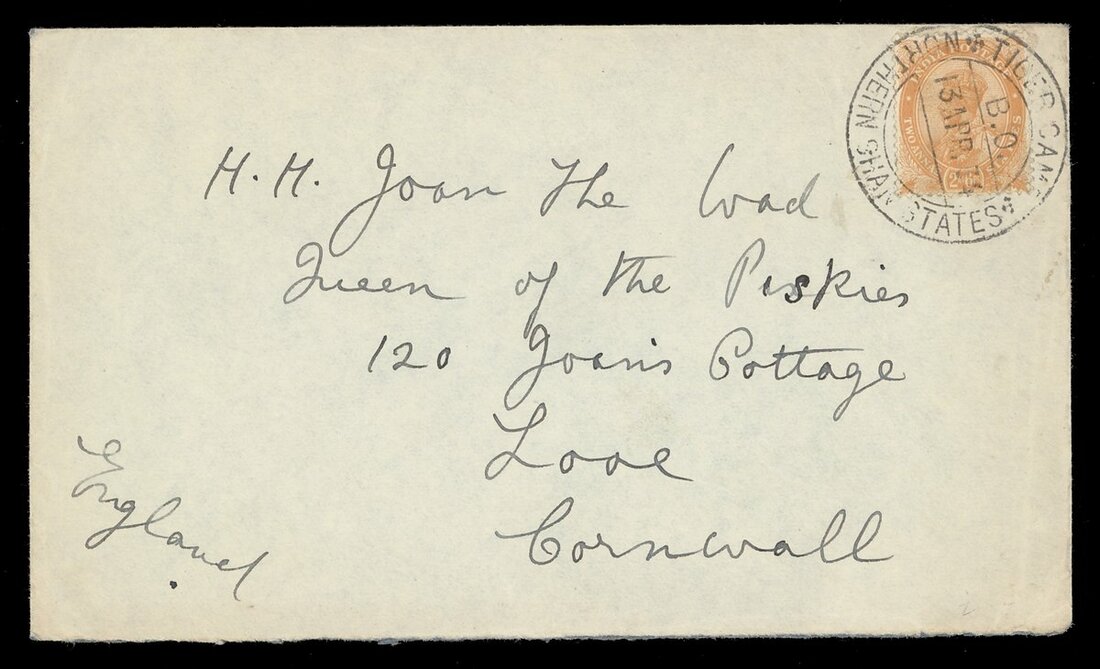 H. H. Joan the Wad
Queen of the Piskies
120 Joan's Cottage
Looe
Cornwall
England
TIGER CAMP
B.O.
13 APR.
NORTHERN SHAN STATES
INDIA POSTAGE
TWO